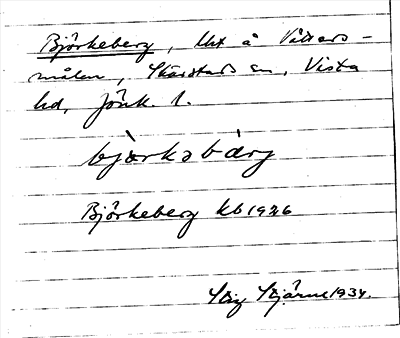 Björkeberg, lht å Vättars-
målen, Skärstads sn, Vista
hd, Jönk. l.
bjærkəbærj
Björkeberg kb 1926
Stig Stjärne 1934.